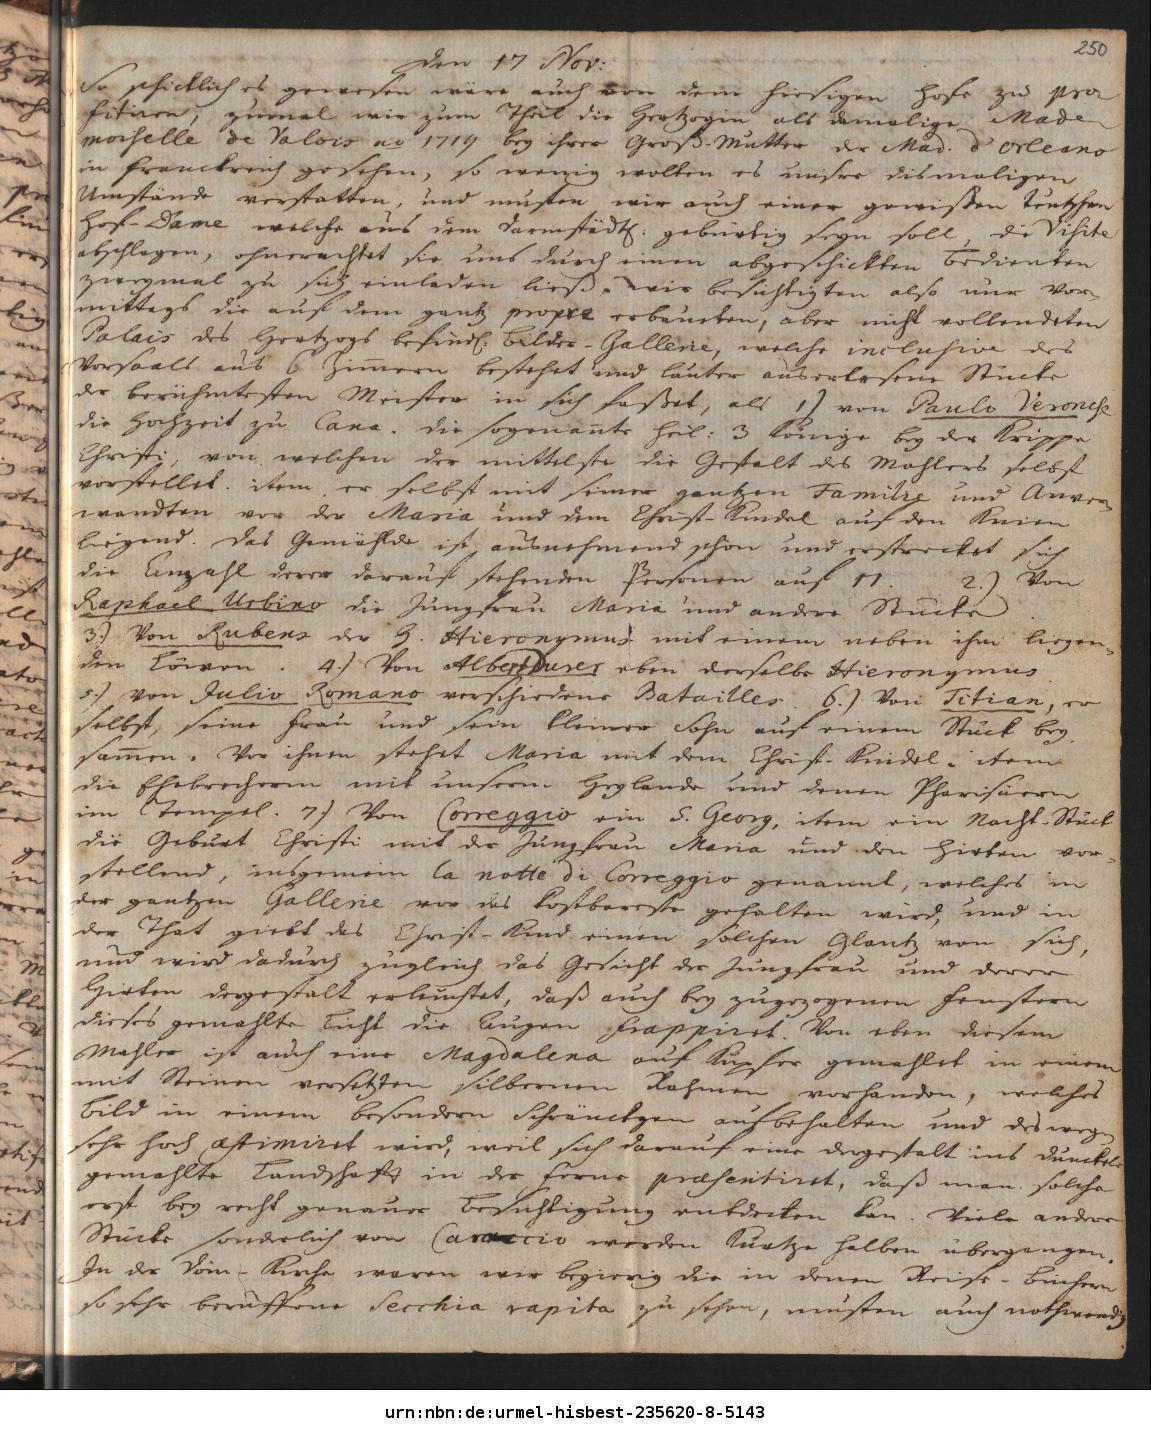 250
den 17 Nov:
So schicklich es gewesen wäre auch von dem hiesigen Hofe zu pro
fitiren, zumal wir zum Theil die Hertzogin als damalige Made-
moiselle de Valois ao 1719 bey ihrer Groß-Mutter der Mad. d'Orleans
in Franckreich gesehen, so wenig wolten es unsre dismaligen
Umstände verstatten, und musten wir auch einer gewissen Teutschen
Hof-Dame welche aus dem Darmstädt: gebürtig seyn soll, die Visite
abschlagen, ohnerachtet sie uns durch einen abgeschickten Bedienten
zweymal zu sich einladen ließ. Wir besichtigten also nur Vor-
mittags die auf dem gantz propre erbauten, aber nicht vollendeten
Palais des Hertzogs befindl: Bilder-Gallerie, welche inclusive des
Vorsaals aus 6 Zimmern bestehet und lauter auserlesene Stücke
der berühmtesten Meister in sich fasset, als 1) von Paulo Veronese
die Hochzeit zu Cana. die sogenannte heil: 3 Könige bey der Krippe
Christi, von welchen der mittelste die Gestalt des Mahlers selbst
vorstellet. item er selbst mit seiner gantzen Familie und Anver-
wandten vor der Maria und dem Christ-Kindel auf den Knien
liegend. Das Gemählde ist ausnehmend schön und erstrecket sich
die Anzahl derer darauf stehenden Personen auf 11. 2.) Von
Raphael Urbino die Jungfrau Maria und andere Stücke
3.) Von Rubens der H. Hieronymus mit einem neben ihm liegen-
den Löwen. 4.) Von Albert Durer eben derselbe Hieronymus
5.) von Julio Romano verschiedene Batailles. 6.) Von Titian, er
selbst, seine Frau und sein kleiner Sohn auf einem Stück bey-
sammen. Vor ihnen stehet Maria mit dem Christ-Kindel: item
die Ehebrecherin mit unserm Heylande und denen Pharisäern
im Tempel. 7.) Von Correggio ein S. Georg, item ein Nacht-Stück
die Geburt Christi mit der Jungfrau Maria und den Hirten vor-
stellend, insgemein la notte di Correggio genannt, welches in
der gantzen Gallerie vor das kostbareste gehalten wird, und in
der That giebt das Christ-Kind einen solchen Glantz von sich,
und wird dadurch zugleich das Gesicht der Jungfrau und derer
Hirten dergestalt erleuchtet, daß auch bey zugezogenen Fenstern
dieses gemahlte Licht die Augen frappiret. Von eben diesem
Mahler ist auch eine Magdalena auf Kupfer gemahlet in einem
mit Steinen versetzten silbernen Rahmen vorhanden, welches
Bild in einem besondern Schränckgen aufbehalten und deswegen
sehr hoch æstimiret wird, weil sich darauf eine dergestalt ins dunckele
gemahlte Landschafft in der Ferne præsentiret, daß man solche
erst bey recht genauer Besichtigung entdecken kan. Viele andere
Stücke sonderlich von Caraccio werden Kürtze halben übergangen.
In der Dom-Kirche waren wir begierig die in denen Reise-Büchern
so sehr beruffene Secchia rapita zu sehen, musten auch nothwendig
urn:nbn:de:urmel-hisbest-235620-8-5143